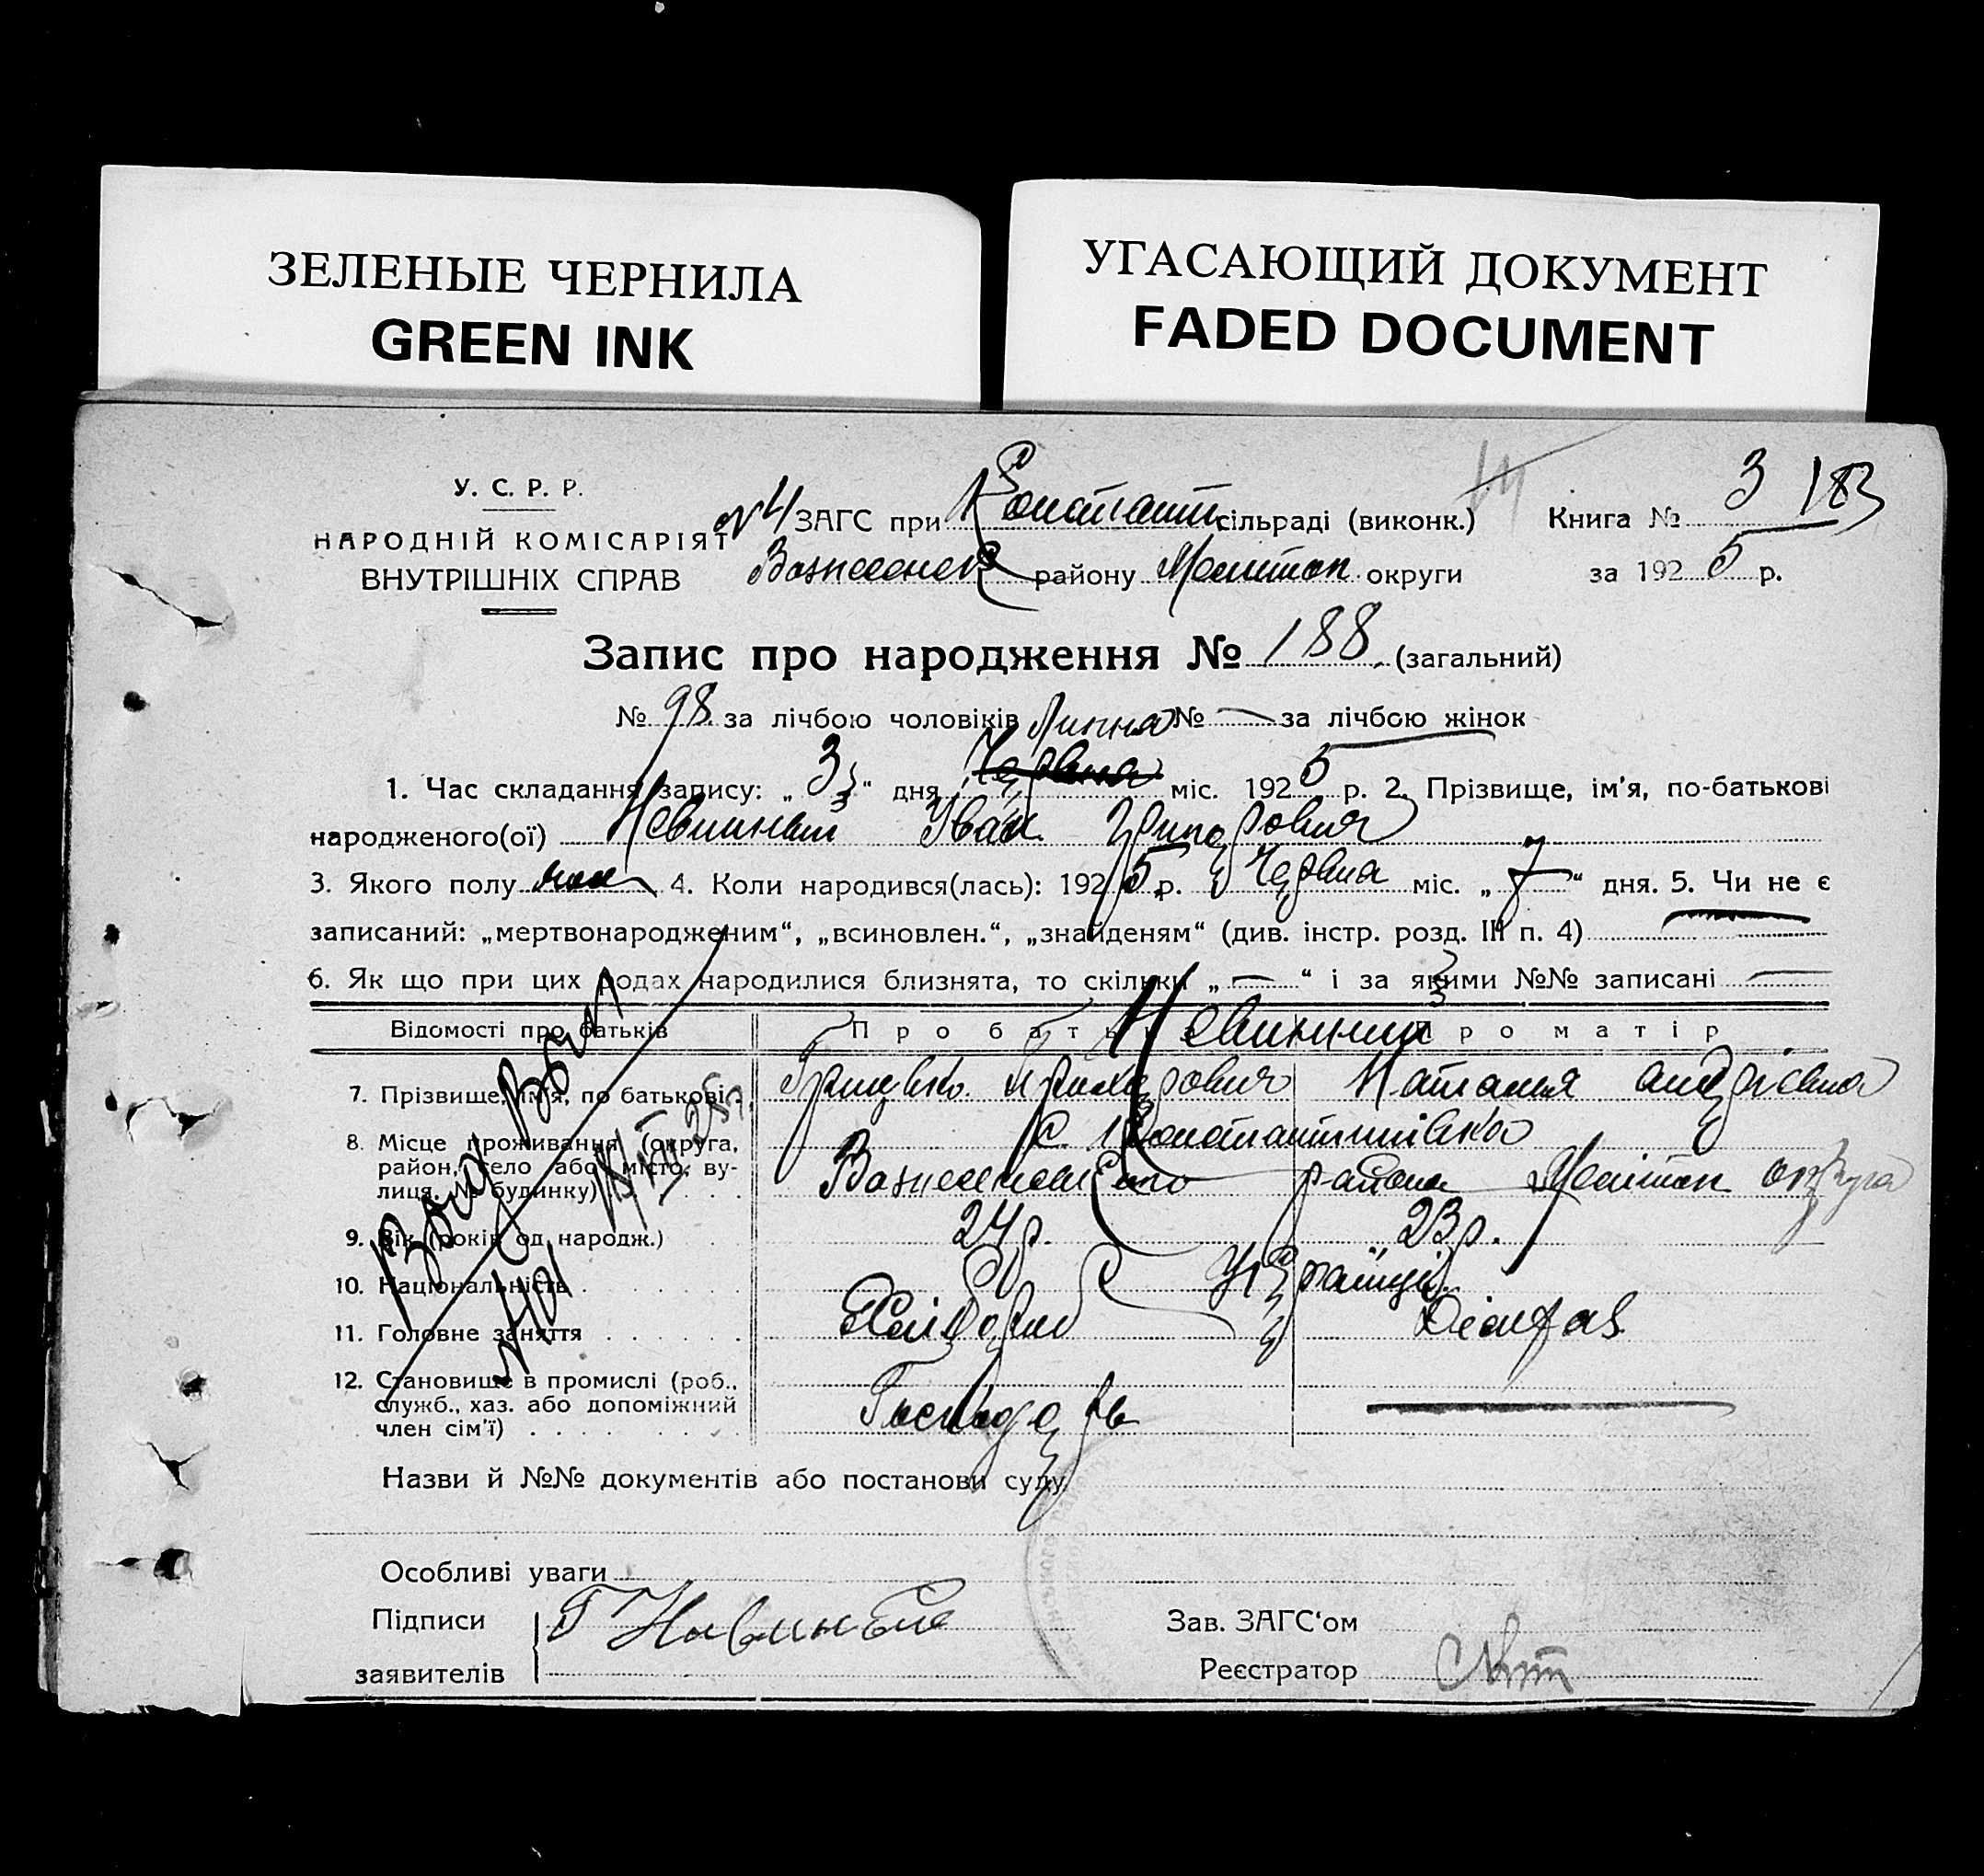 ЗЕЛЕНЫЕ ЧЕРНИЛА
GREEN INK
УГАСАЮЩИЙ ДОКУМЕНТ
FADED DOCUMENT
У. С. Р. Р.
НАРОДНІЙ КОМІСАРІЯТ
ВНУТРІШНІХ СПРАВ
№ 4 ЗАГС при Констант сільраді (виконк.) Книга № 3 183
району Мелітоп округи за 1925 р.
Запис про народження № 188 (загальний)
№ 98 за лічбою чоловіків № — за лічбою жінок
Липня
1. Час складання запису: „ 3 “ дня Червня міс. 1925 р. 2. Прізвище, ім'я, по-батькові
народженого(ої) Невинный Іван
3. Якого полу 4. Коли народився(лась): 1925 р. Червня міс. „ 7 “ дня. 5. Чи не є
записаний: „мертвонародженим“, „всиновлен.“, „знайденям“ (див. інстр. розд. III п. 4)
6. Як що при цих родах народилися близнята, то скільки „ — “ і за якими №№ записані —
Відомості про батьків Про батька Про матір
Невинний
7. Прізвище, ім'я, по батькові. Наталія Андрієвна
8. Місце проживання (округа, район, село або місто, ву-
лиця, № будинку) с. Константинівка
района Мелітоп округа
9. Вік (років од народж.) 24 р. 23 р.
10. Національність Українці
11. Головне заняття Хлібороб
12. Становище в промислі (роб.,
служб., хаз. або допоміжний
член сім'ї) Господарь
Назви й №№ документів або постанови суду
Особливі уваги
Підписи Г Невинный
заявителів
Зав. ЗАГС'ом
Реєстратор